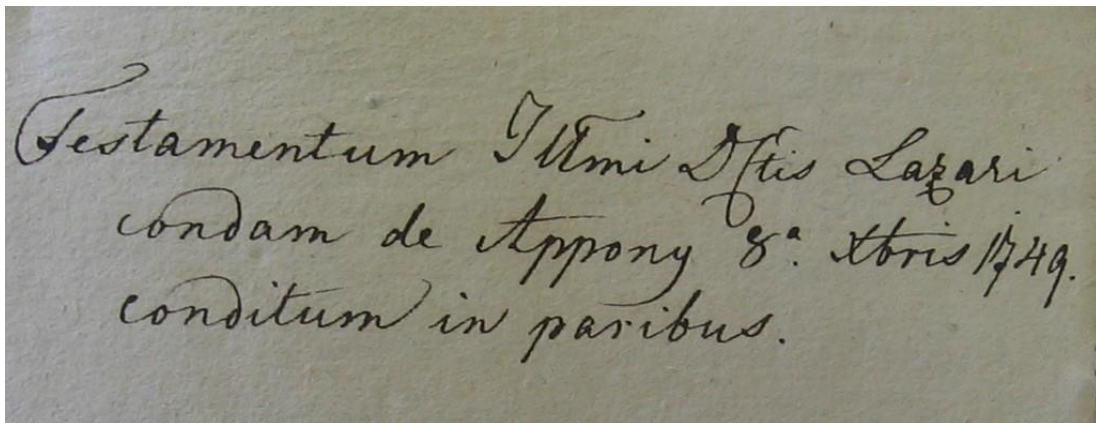 Testamentum Illmi Dftis Lazari
condam de Appony 8ª. Xbris 1749.
conditum in paribus.